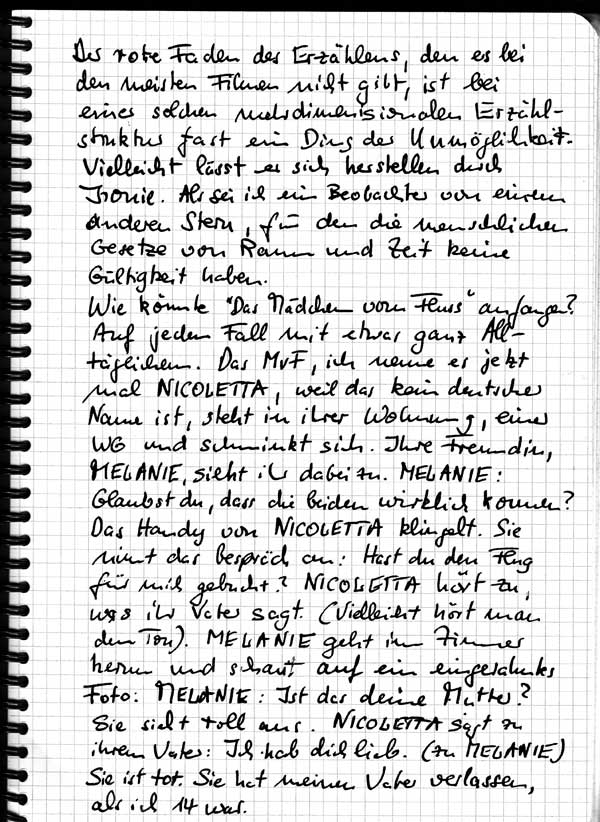 Der rote Faden des Erzählens, den es bei
den meisten Filmen nicht gibt, ist bei
einer solchen mehrdimensionalen Erzähl-
struktur fast ein Ding der Unmöglichkeit.
Vielleicht lässt er sich herstellen durch
Ironie. Als sei ich ein Beobachter von einem
anderen Stern, für den die menschlichen
Gesetze von Raum und Zeit keine
Gültigkeit haben.
Wie könnte "Das Mädchen vom Fluss" anfangen?
Auf jeden Fall mit etwas ganz All-
täglichem. Das MvF, ich nenne es jetzt
mal NICOLETTA, weil das kein deutscher
Name ist, steht in ihrer Wohnung, einer
WG und schminkt sich. Ihre Freundin,
MELANIE, sieht ihr dabei zu. MELANIE:
Glaubst du, dass die beiden wirklich kommen?
Das Handy von NICOLETTA klingelt. Sie
nimt das Gespräch an: Hast du den Flug
für mich gebucht? NICOLETTA hört zu,
was ihr Vater sagt. (Vielleicht hört man
den Ton). MELANIE geht im Zimmer
herum und schaut auf ein eingerahmtes
Foto: MELANIE: Ist das deine Mutter?
Sie sieht toll aus. NICOLETTA sagt zu
ihrem Vater: Ich hab dich lieb. (zu MELANIE)
Sie ist tot. Sie hat meinen Vater verlassen,
als ich 14 war.